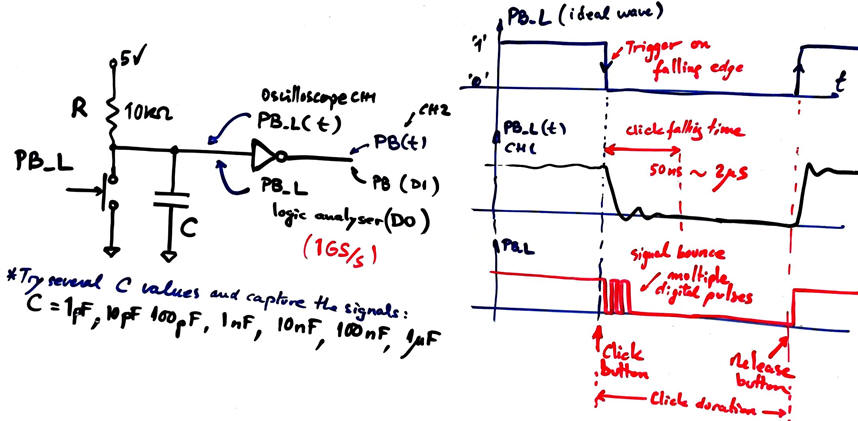 5V
R
10kΩ
PB_L
C
Oscilloscope CH1
PB_L(t)
CH2
PB(t)
PB_L
PB (D1)
logic analyser(D0)
(1GS/s)
*Try several C values and capture the signals:
C = 1pF, 10pF 100pF, 1nF, 10nF, 100nF, 1µF
PB_L (ideal wave)
'1'
Trigger on
falling edge
'0'
t
PB_L(t)
CH1
click falling time
50ns ~ 2µS
PB_L
signal bounce
moltiple
digital pulses
Click
button
Release
button
Click duration